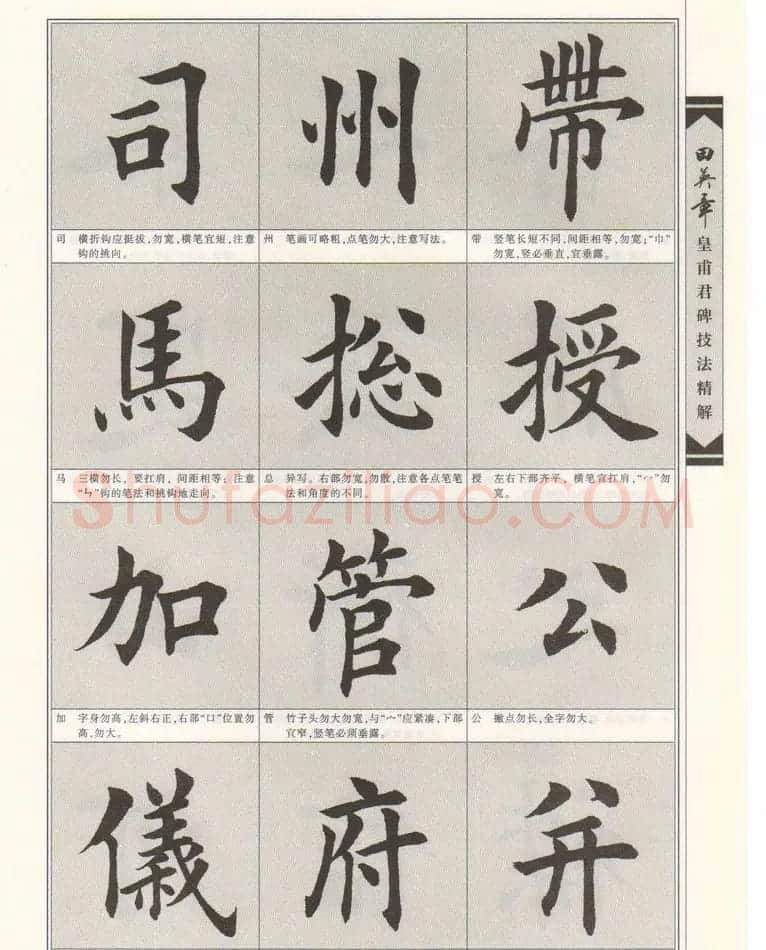 司 州 帶
司 横折钩应挺拔,勿宽,横笔宜短,注意
钩的挑向。
州 笔画可略粗,点笔勿大,注意写法。
带 竖笔长短不同,间距相等,勿宽;“巾”
勿宽,竖必垂直,宜垂露。
馬 捴 授
马 三横勿长,要扛肩,间距相等;注意
“㇉”钩的笔法和挑钩地走向。
总 异写。右部勿宽,勿散,注意各点笔笔
法和角度的不同。
授 左右下部齐平,横笔宜扛肩,“冖”勿
宽。
加 管 公
加 字身勿高,左斜右正,右部“口”位置勿
高,勿大。
管 竹子头勿大勿宽,与“宀”应紧凑,下部
宜窄,竖笔必须垂露。
公 撇点勿长,全字勿大。
儀 府 并
田英章
皇甫君碑技法精解
Shufaziliao.COM